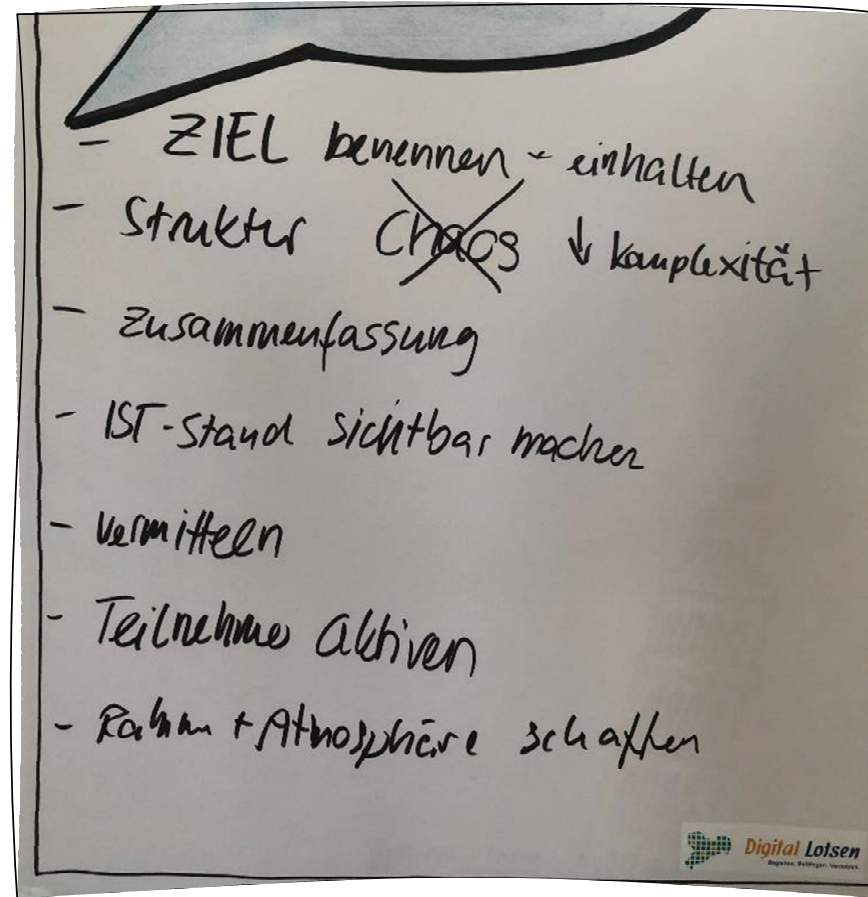 - ZIEL benennen - einhalten
- Struktur Chaos ↓ Komplexität
- Zusammenfassung
- IST-Stand sichtbar machen
- vermitteln
- Teilnehmer aktiven
- Rahmen + Atmosphäre schaffen
Digital Lotsen